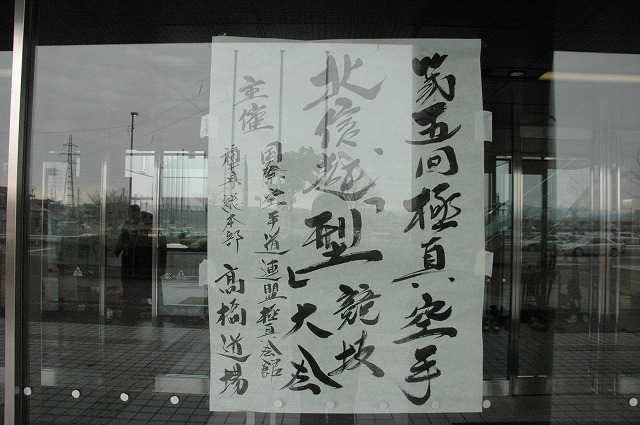 第五回極真空手
北信越「型」競技大会
主催
国際空手道連盟極真会館
本部 高橋道場